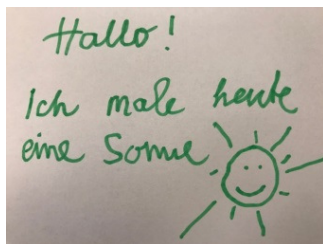 Hallo!
Ich male heute
eine Sonne